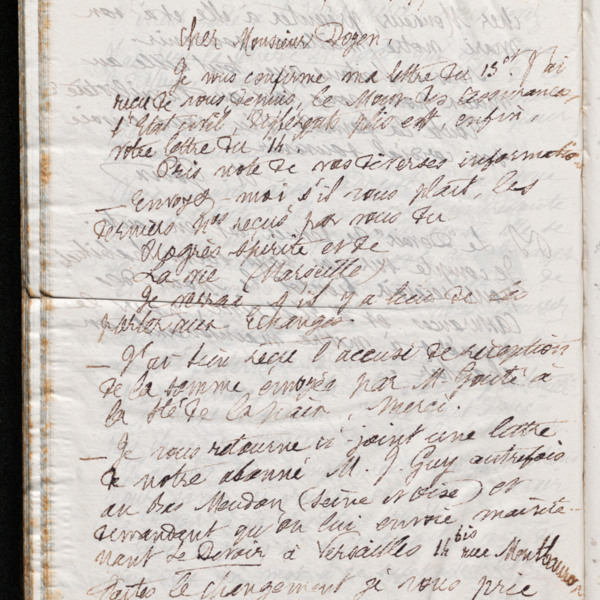 cher Monsieur Dozen,
Je vous confirme ma lettre du 13 ct. J'ai
reçu de vous depuis, le Monr des assurances,
l'Etat civil Différents plis et enfin,
votre lettre du 14.
Pris note de vos diverses informations
— Envoyez-moi s'il vous plait, les
derniers nos reçus par vous du
Progrès Spirite et de
La vie (Marseille)
Je verrai s'il y a lieu de
porter aux Echanges.
— J'ai bien reçu l'accusé de réception
de la somme envoyée par M. Gouté à
la Sté de la paix, Merci.
— Je vous retourne ci-joint une lettre
de notre abonné M. J. Guy autrefois
au Bas Meudon (Seine et Oise) et
demandant qu'on lui envoie mainte-
nant Le Devoir à Versailles 14 bis rue Montbauron
Faites le changement je vous prie